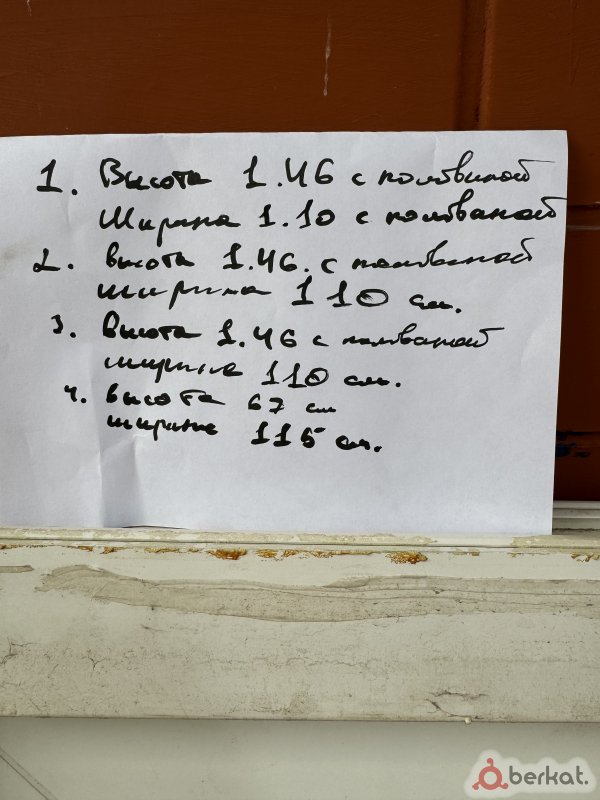 1. Высота 1.46 с половиной
Ширина 1.10 с полваной
2. высота 1.46. с половиной
ширина 110 см.
3. Высота 1.46 с полваной
ширина 110 см.
4. высота 67 см
ширина 115 см.
berkat.